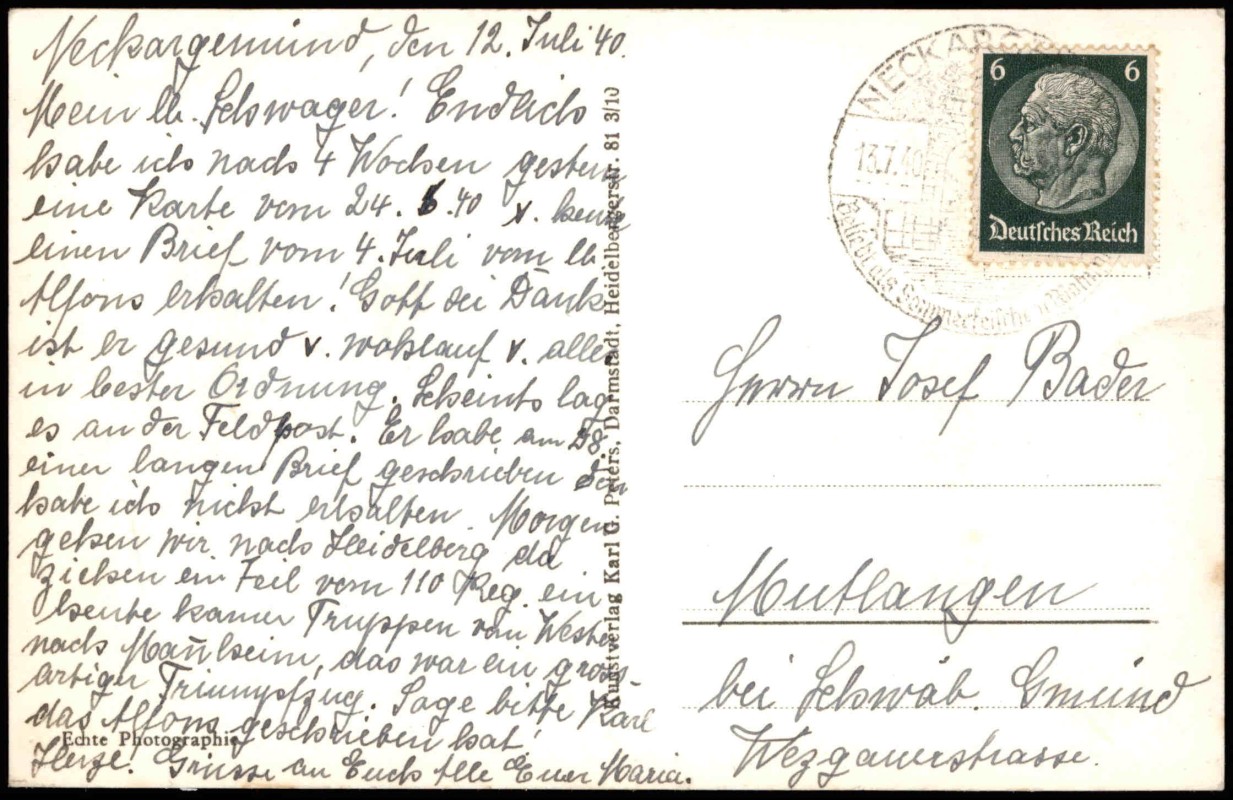 Neckargemünd, den 12. Juli 40.
Mein lb. Schwager! Endlich
habe ich nach 4 Wochen gestern
eine Karte vom 24. 6. 40 u. heute
einen Brief vom 4. Juli vom lb.
Alfons erhalten! Gott sei Dank
ist er gesund u. wohlauf u. alles
in bester Ordnung. Scheints lag
es an der Feldpost. Er habe am 28.
einer langen Brief geschrieben den
habe ich nicht erhalten. Morgen
gehen wir nach Heidelberg da
ziehen ein Teil vom 110 Reg. ein
heute kamen Truppen von Westen
nach Mannheim, das war ein gross-
artiger Triumpfzug. Sage bitte Karl
das Alfons geschrieben hat!
Herzl. Grüsse an Euch Alle Euer Maria.
Echte Photographie
Kunstverlag Karl G. Peters, Darmstadt, Heidelbergerstr. 81 3/10
NECKARG
13.7.40
Beliebt als Sommerfrische u.
6 6
Deutsches Reich
Herrn Josef Bader
Mutlangen
bei Schwäb. Gmünd
Wezgauerstrasse.